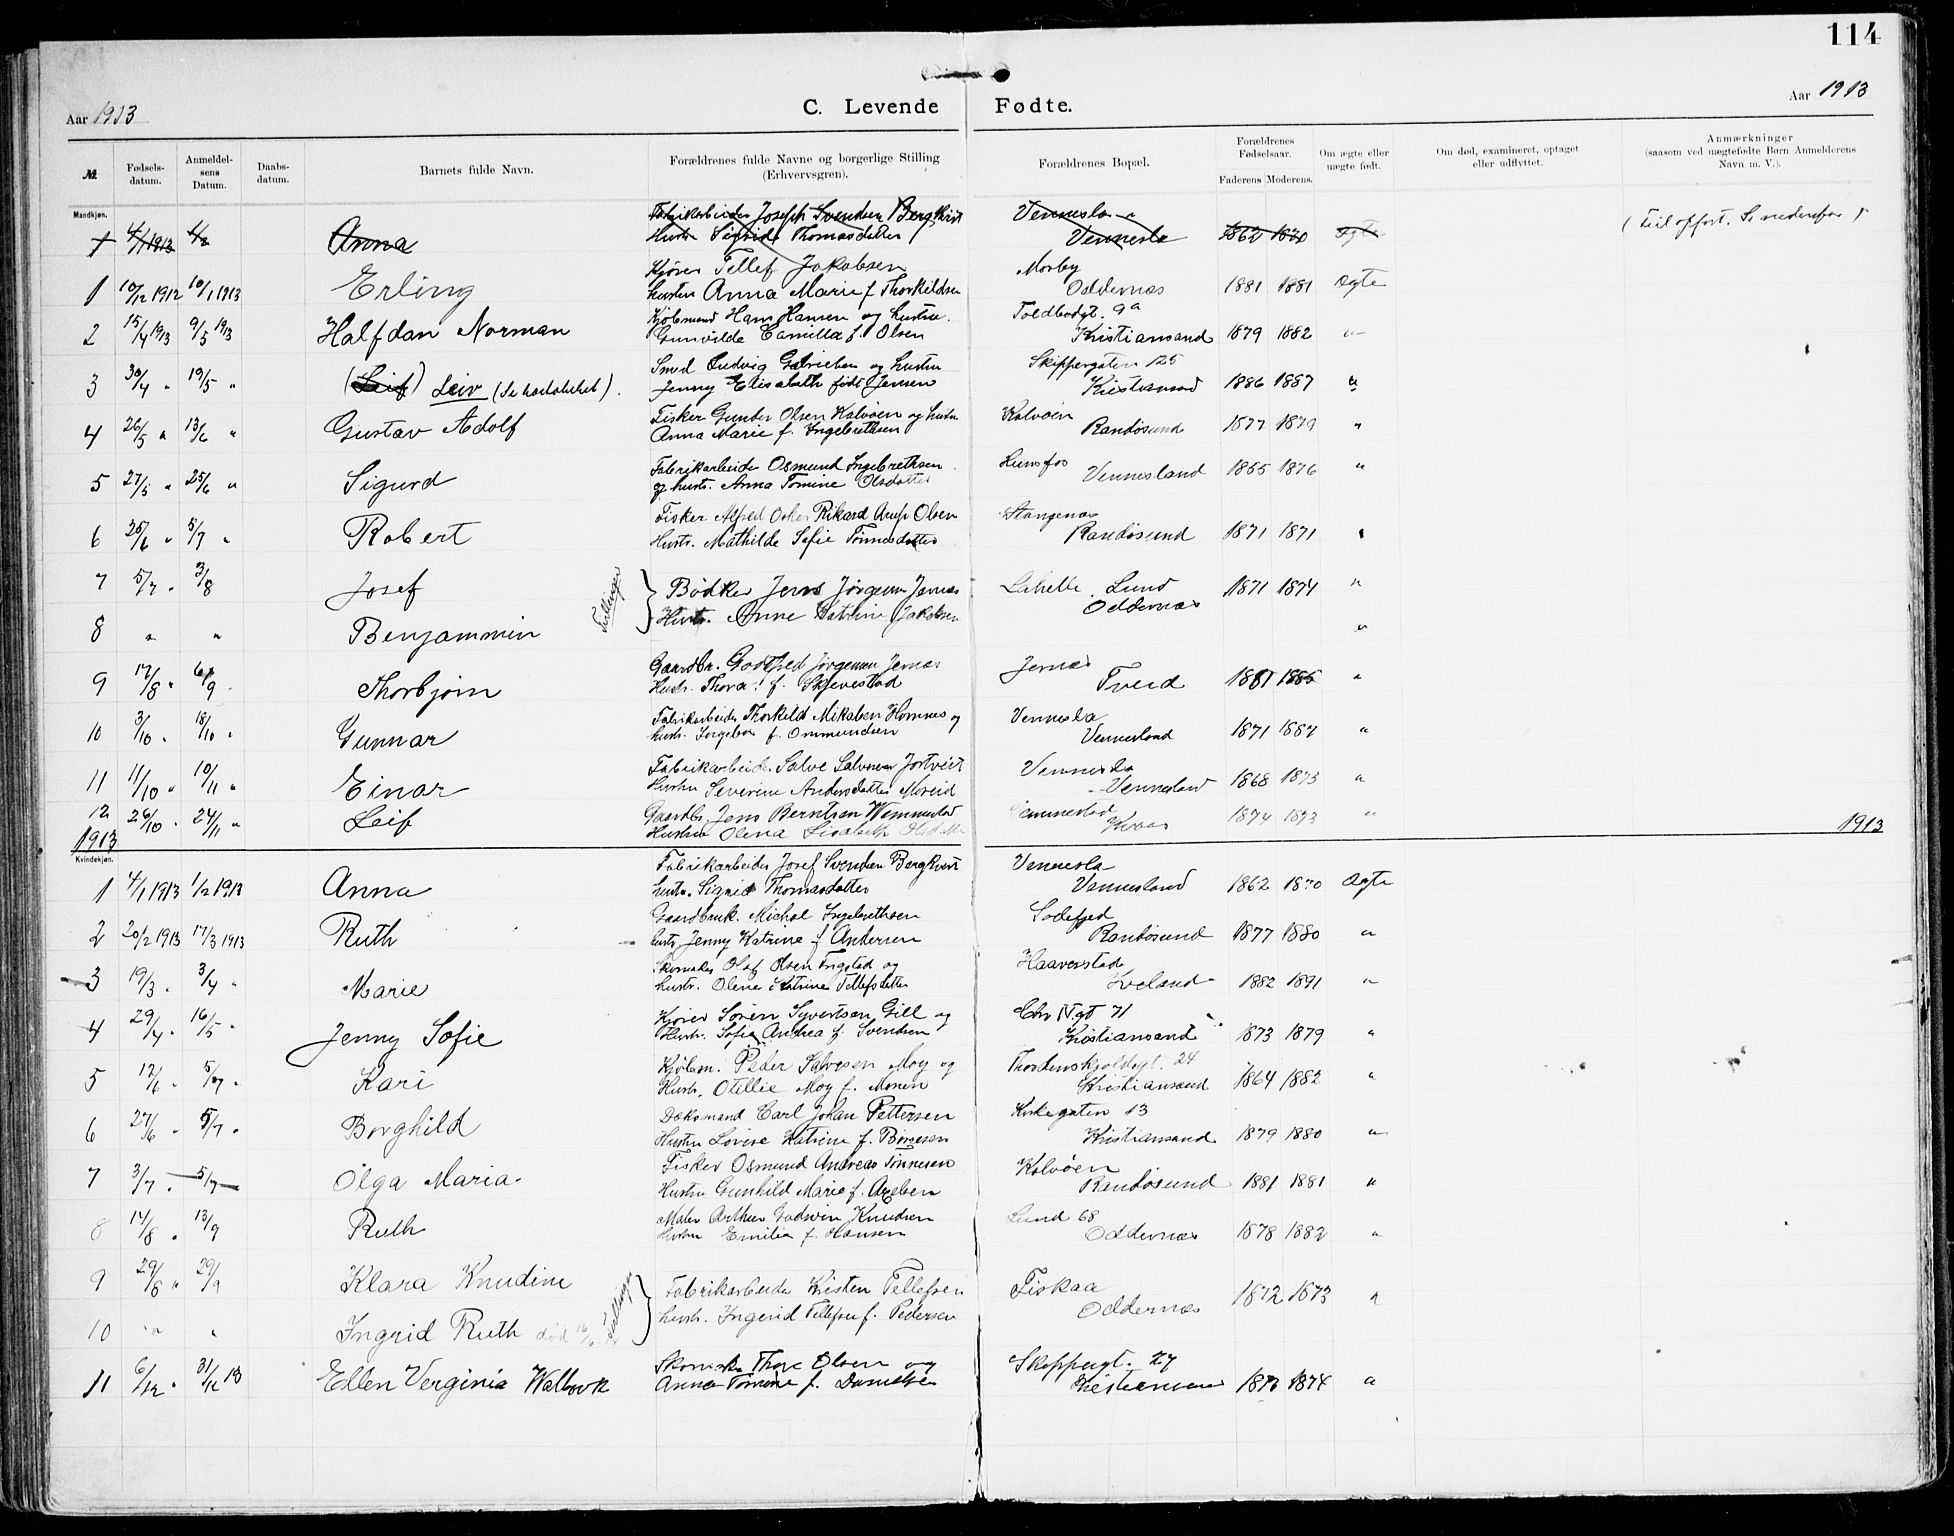 114
Aar 1913 C. Levende Fødte. Aar 1913
№ Fødsels-datum. Anmeldel-sens Datum. Daabs-datum. Barnets fulde Navn. Forældrenes fulde Navne og borgerlige Stilling (Erhvervsgren). Forældrenes Bopæl. Forældrenes Fødselsaar. Faderens Moderens. Om ægte eller uægte født. Om død, examineret, optaget eller udflyttet. Anmærkninger (saasom ved uægtefødte Børn Anmelderens Navn m. V.).
Mandkjøn.
1 4/1 1913 1/2 Anna Fabrikarbeider Joseph Svendsen Bergkvist Vennesla
Hustr Sigrid Thomasdatter Vennesla 1862 1870 Ægte
1 10/12 1912 10/1 1913 Erling Kjører Tellef Jakobsen Mosby
hustru Anna Marie f. Thorkildsen Oddernæs 1881 1881 Ægte
2 15/4 1913 9/5 1913 Halfdan Norman Kjøbmand Hans Hansen og hustru Toldbodgt. 9a
Gunvilde Camilla f. Olsen Kristiansand 1879 1882 "
3 30/4 " 19/5 " (Leif) Leiv Smed Ludvig Gabrielsen og hustru Skippergaten 125
Jenny Elisabeth født Jensen Kristiansand 1886 1887 "
4 26/5 " 13/6 " Gustav Adolf Fisker Gunder Olsen Kalvøen og hustru Kalvøen
Anna Marie f. Ingebrethsen Randøsund 1877 1879 "
5 27/5 " 25/6 " Sigurd Fabrikarbeider Osmund Ingebrethsen Hunsfos
og hustr. Anna Tomine Olsdatter Vennesland 1855 1876 "
6 25/6 " 5/7 " Robert Fisker Alfred Oskar Rikard Arup Olsen Stangenæs
Hustr. Mathilde Sofie Tønnesdatter Randøsund 1871 1871 "
7 5/7 " 3/8 Josef Tvillinger Bødker Jens Jørgensen Jernæs Lahelle, Lund 1871 1874 "
8 " " Benjammin Hustr. Anne Katrine Jakobsen Oddernæs "
9 17/8 " 6/9 Thorbjørn Gaardbr. Godtfred Jørgensen Jernæs Jernæs
Hustr. Thora f. Skjevestad Tveid 1881 1885 "
10 3/10 " 18/10 " Gunnar Fabrikarbeider Thorkild Mikalsen Homnes og Vennesla
hustr. Ingebor f. Ommundsen Vennesland 1871 1887 "
11 11/10 " 10/11 " Einar Fabrikarbeider Salve Salvesen Jortveit Vennesla
Hustru Severine Andersdatter Moseid Vennesland 1868 1873 "
12 26/10 " 24/11 " Leif Gaardbr. Jens Berntsen Wemmestad Vemmestad
Hustru Olena Lisabeth Olsdatter Kvaas 1874 1873 "
1913 1913
Kvindekjøn.
1 4/1 1913 1/2 1913 Anna Fabrikarbeider Josef Svendsen Bergkvist Vennesla
hustr. Sigrid Thomasdatter Vennesland 1862 1870 Ægte
2 20/2 1913 17/3 1913 Ruth Gaardbruk. Michal Ingebrethsen
hustr. Jenny Katrine f. Andersen Randøsund 1877 1880 "
3 19/3 " 3/4 " Marie Skomaker Olaf Olsen Frigstad og Haaverstad
hustr. Olene Katrine Tellefsdatter Iveland 1882 1891 "
4 29/4 " 16/5 " Jenny Sofie Kjører Søren Syvertsen Gill og Chr IV.gt 71
Hustr. Sofie Andrea f. Svendsen Kristiansand 1873 1879 "
5 12/6 " 5/7 " Kari Kjøbm. Peder Salvesen Moy og Thordenskjoldsgt. 24
Hustr. Otellie Moy f. Monen Kristiansand 1864 1882 "
6 27/6 " 5/7 " Borghild Dæksmand Carl Johan Pettersen Kirkegaten 13
Hustru Lovise Katrine f. Børresen Kristiansand 1879 1880 "
7 3/7 " 5/7 Olga Maria Fisker Osmund Andreas Tønnesen Kalvøen
Hustru Gunhild Marie f. Axelsen Randøsund 1881 1881 "
8 14/8 " 13/9 Ruth Maler Arthur Lodvin Knudsen Lund 68
Hustru Emilie f. Hansen Oddernæs 1878 1882 "
9 29/8 " 29/9 Klara Knudine Tvillinger Fabrikarbeider Kristen Tellefsen Fiskaa 1872 1873 "
10 " " Ingrid Ruth død hustr. Ingerid Tellefsen f. Pedersen Oddernæs
11 6/12 " 31/12 13 Ellen Verginia Walborg Skomaker Thore Olsen og Skippergt. 27
Anna Tomine f. Danielsen Kristiansand 1874 "